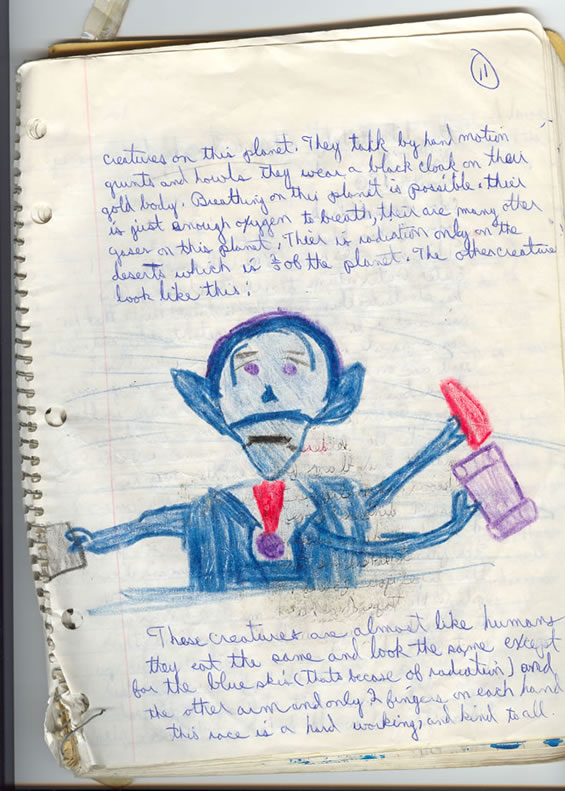 11
creatures on this planet. They talk by hand motion
grunts and howls they wear a black cloak on their
gold body. Breathing on this planet is possible. their
is just enough oxygen to breath, their are many other
gases on this planet, Thier is radiation only on the
deserts which is of the planet. The other creature
look like this:
These creatures are almost like humans
they eat the same and look the same except
for the blue skin (thats becase of radiation) and
the other arm and only 2 fingers on each hand
this race is a hard working, and kind to all.